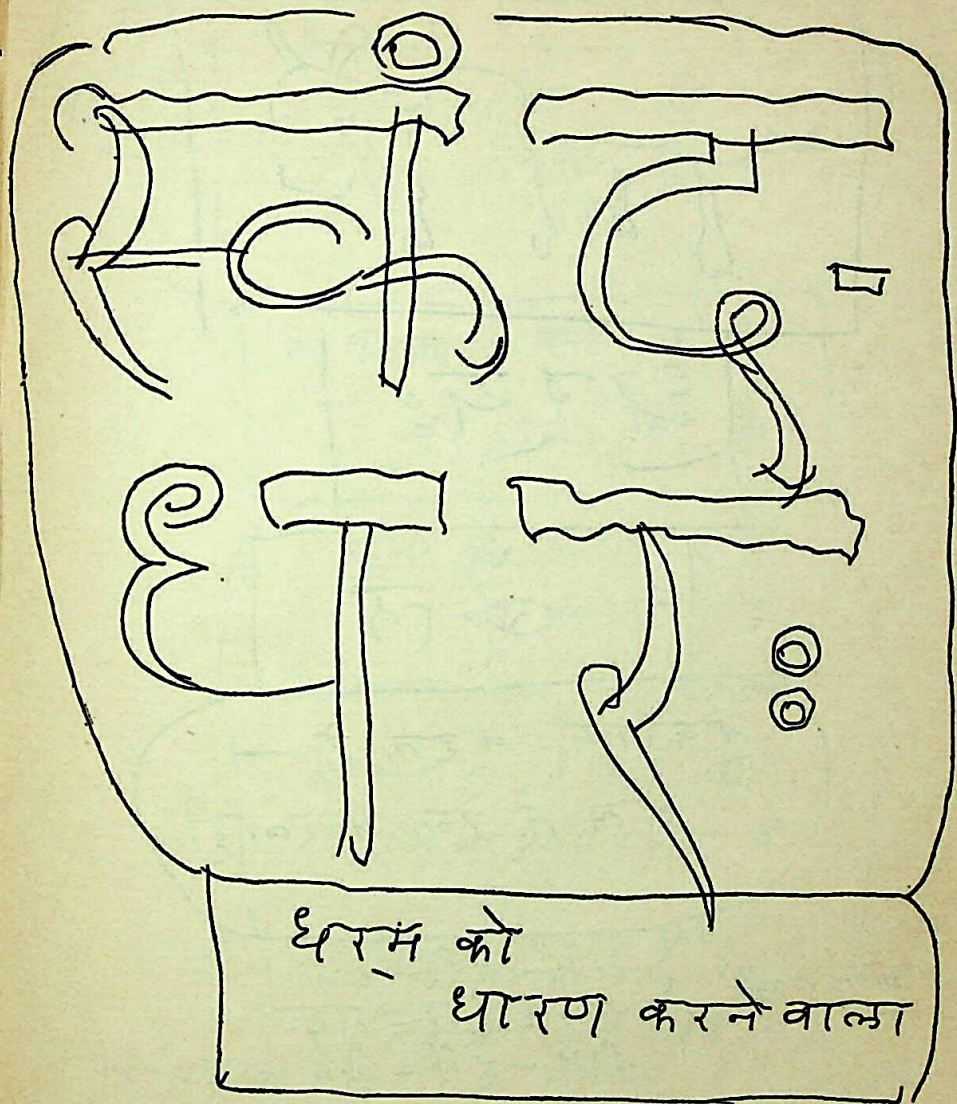 स्कंद-
धरः
धर्म को
धारण करने वाला